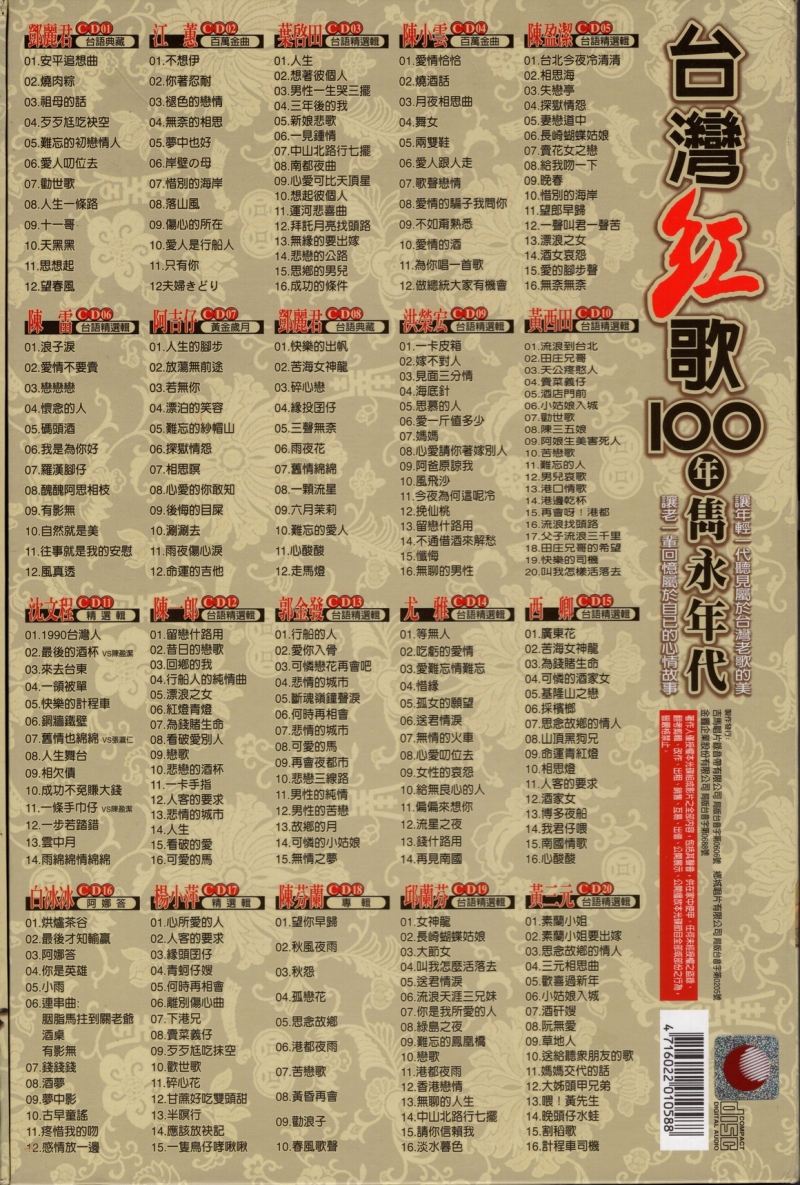 台灣紅歌100年雋永年代
讓年輕一代聽見屬於台灣老歌的美
讓老一輩回憶屬於自己的心情故事
鄧麗君 CD01 台語典藏
01.安平追想曲
02.燒肉粽
03.祖母的話
04.歹歹尪吃袂空
05.難忘的初戀情人
06.愛人叨位去
07.勸世歌
08.人生一條路
09.十一哥
10.天黑黑
11.思想起
12.望春風
江蕙 CD02 百萬金曲
01.不想伊
02.你著忍耐
03.褪色的戀情
04.無奈的相思
05.夢中也好
06.岸壁の母
07.惜別的海岸
08.落山風
09.傷心的所在
10.愛人是行船人
11.只有你
12夫婦きどり
葉啓田 CD03 台語精選輯
01.人生
02.想著彼個人
03.男性一生哭三擺
04.三年後的我
05.新娘悲歌
06.一見鍾情
07.中山北路行七擺
08.南都夜曲
09.心愛可比天頂星
10.想起彼個人
11.運河悲喜曲
12.拜託月亮找頭路
13.無緣的要出嫁
14.悲戀的公路
15.思鄉的男兒
16.成功的條件
陳小雲 CD04 百萬金曲
01.愛情恰恰
02.燒酒話
03.月夜相思曲
04.舞女
05.兩雙鞋
06.愛人跟人走
07.歌聲戀情
08.愛情的騙子我問你
09.不如甭熟悉
10.愛情的酒
11.為你唱一首歌
12.做總統大家有機會
陳盈潔 CD05 台語精選輯
01.台北今夜冷清清
02.相思海
03.失戀亭
04.探獄情怨
05.妻戀道中
06.長崎蝴蝶姑娘
07.賣花女之戀
08.給我吻一下
09.晚春
10.惜別的海岸
11.望郎早歸
12.一聲叫君一聲苦
13.漂浪之女
14.酒女哀怨
15.愛的腳步聲
16.無奈無奈
陳雷 CD06 台語精選輯
01.浪子淚
02.愛情不要賣
03.戀戀戀
04.懷念的人
05.碼頭酒
06.我是為你好
07.羅漢腳仔
08.醜醜阿思相枝
09.有影無
10.自然就是美
11.往事就是我的安慰
12.風真透
阿吉仔 CD07 黃金歲月
01.人生的腳步
02.放蕩無前途
03.若無你
04.漂泊的笑容
05.難忘的紗帽山
06.探獄情怨
07.相思暝
08.心愛的你敢知
09.後悔的目屎
10.涮涮去
11.雨夜傷心淚
12.命運的吉他
鄧麗君 CD08 台語典藏
01.快樂的出帆
02.苦海女神龍
03.碎心戀
04.緣投囝仔
05.三聲無奈
06.雨夜花
07.舊情綿綿
08.一顆流星
09.六月茉莉
10.難忘的愛人
11.心酸酸
12.走馬燈
洪榮宏 CD09 台語精選輯
01.一卡皮箱
02.嫁不對人
03.見面三分情
04.海底針
05.思慕的人
06.愛一斤値多少
07.媽媽
08.心愛請你著嫁別人
09.阿爸原諒我
10.風飛沙
11.今夜為何這呢冷
12.挽山桃
13.留戀什路用
14.不通借酒來解愁
15.懺悔
16.無聊的男性
黃西田 CD10 台語精選輯
01.流浪到台北
02.田庄兄哥
03.天公疼憨人
04.賣菜義仔
05.酒店門前
06.小姑娘入城
07.勸世歌
08.陳三五娘
09.阿娘生美害死人
10.苦戀歌
11.難忘的人
12.男兒哀歌
13.港口情歌
14.港邊乾杯
15.再會呀！港都
16.流浪找頭路
17.父子流浪三千里
18.田庄兄哥的希望
19.快樂的司機
20.叫我怎樣活落去
沈文程 CD11 精選輯
01.1990台灣人
02.最後的酒杯 VS陳盈潔
03.來去台東
04.一領被單
05.快樂的計程車
06.銅牆鐵壁
07.舊情也綿綿
08.人生舞台
09.相欠債
10.成功不免賺大錢
11.一條手巾仔 VS陳盈潔
12.一步若踏錯
13.雲中月
14.雨綿綿情綿綿
陳一郎 CD12 台語精選輯
01.留戀什路用
02.昔日的戀歌
03.回鄉的我
04.行船人的純情曲
05.漂浪之女
06.紅燈青燈
07.為錢賭生命
08.看破愛別人
09.戀歌
10.悲戀的酒杯
11.一卡手指
12.人客的要求
13.悲情的城市
14.人生
15.看破的愛
16.可愛的馬
郭金發 CD13 台語精選輯
01.行船的人
02.愛你入骨
03.可憐戀花再會吧
04.悲情的城市
05.斷魂嶺鐘聲淚
06.何時再相會
07.悲情的城市
08.可愛的馬
09.再會夜都市
10.悲戀三線路
11.男性的純情
12.男性的苦戀
13.故鄉的月
14.可憐的小姑娘
15.無情之夢
尤雅 CD14 台語精選輯
01.等無人
02.吃虧的愛情
03.愛難忘情難忘
04.惜緣
05.孤女的願望
06.送君情淚
07.無情的火車
08.心愛叨位去
09.女性的哀怨
10.給無良心的人
11.偏偏來想你
12.流星之夜
13.錢什路用
14.再見南國
西卿 CD15 台語精選輯
01.廣東花
02.苦海女神龍
03.為錢賭生命
04.可憐的酒家女
05.基隆山之戀
06.採檳榔
07.思念故鄉的情人
08.山頂黑狗兄
09.命運青紅燈
10.相思燈
11.人客的要求
12.酒家女
13.博多夜船
14.我君仔喂
15.南國情歌
16.心酸酸
白冰冰 CD16 阿娜答
01.烘爐茶谷
02.最後才知輸贏
03.阿娜答
04.你是英雄
05.小雨
06.連串曲:
胭脂馬拄到關老爺
酒桌
有影無
07.錢錢錢
08.酒夢
09.夢中影
10.古早童謠
11.疼惜我的吻
12.感情放一邊
楊小萍 CD17 精選輯
01.心所愛的人
02.人客的要求
03.緣頭囝仔
04.青蚵仔嫂
05.何時再相會
06.離別傷心曲
07.下港兄
08.賣菜義仔
09.歹歹尪吃抹空
10.歡世歌
11.碎心花
12.甘蔗好吃雙頭甜
13.半暝行
14.應該放袂記
15.一隻鳥仔哮啾啾
陳芬蘭 CD18 專輯
01.望你早歸
02.秋風夜雨
03.秋怨
04.孤戀花
05.思念故鄉
06.港都夜雨
07.苦戀歌
08.黃昏再會
09.勸浪子
10.春風歌聲
邱蘭芬 CD19 台語精選輯
01.女神龍
02.長崎蝴蝶姑娘
03.大節女
04.叫我怎麼活落去
05.送君情淚
06.流浪天涯三兄妹
07.你是我所愛的人
08.綠島之夜
09.難忘的鳳凰橋
10.戀歌
11.港都夜雨
12.香港戀情
13.無聊的人生
14.中山北路行七擺
15.請你信賴我
16.淡水暮色
黃三元 CD20 台語精選輯
01.素蘭小姐
02.素蘭小姐要出嫁
03.思念故鄉的情人
04.三元相思曲
05.歡喜過新年
06.小姑娘入城
07.酒矸嫂
08.阮無愛
09.草地人
10.送給聽衆朋友的歌
11.媽媽交代的話
12.大姊頭甲兄弟
13.喂！黃先生
14.晚頭仔水蛙
15.割稻歌
16.計程車司機
製作發行:
吉馬唱片錄音帶有限公司
鄉城唱片有限公司
4716022010588
COMPACT
disc
DIGITAL AUDIO